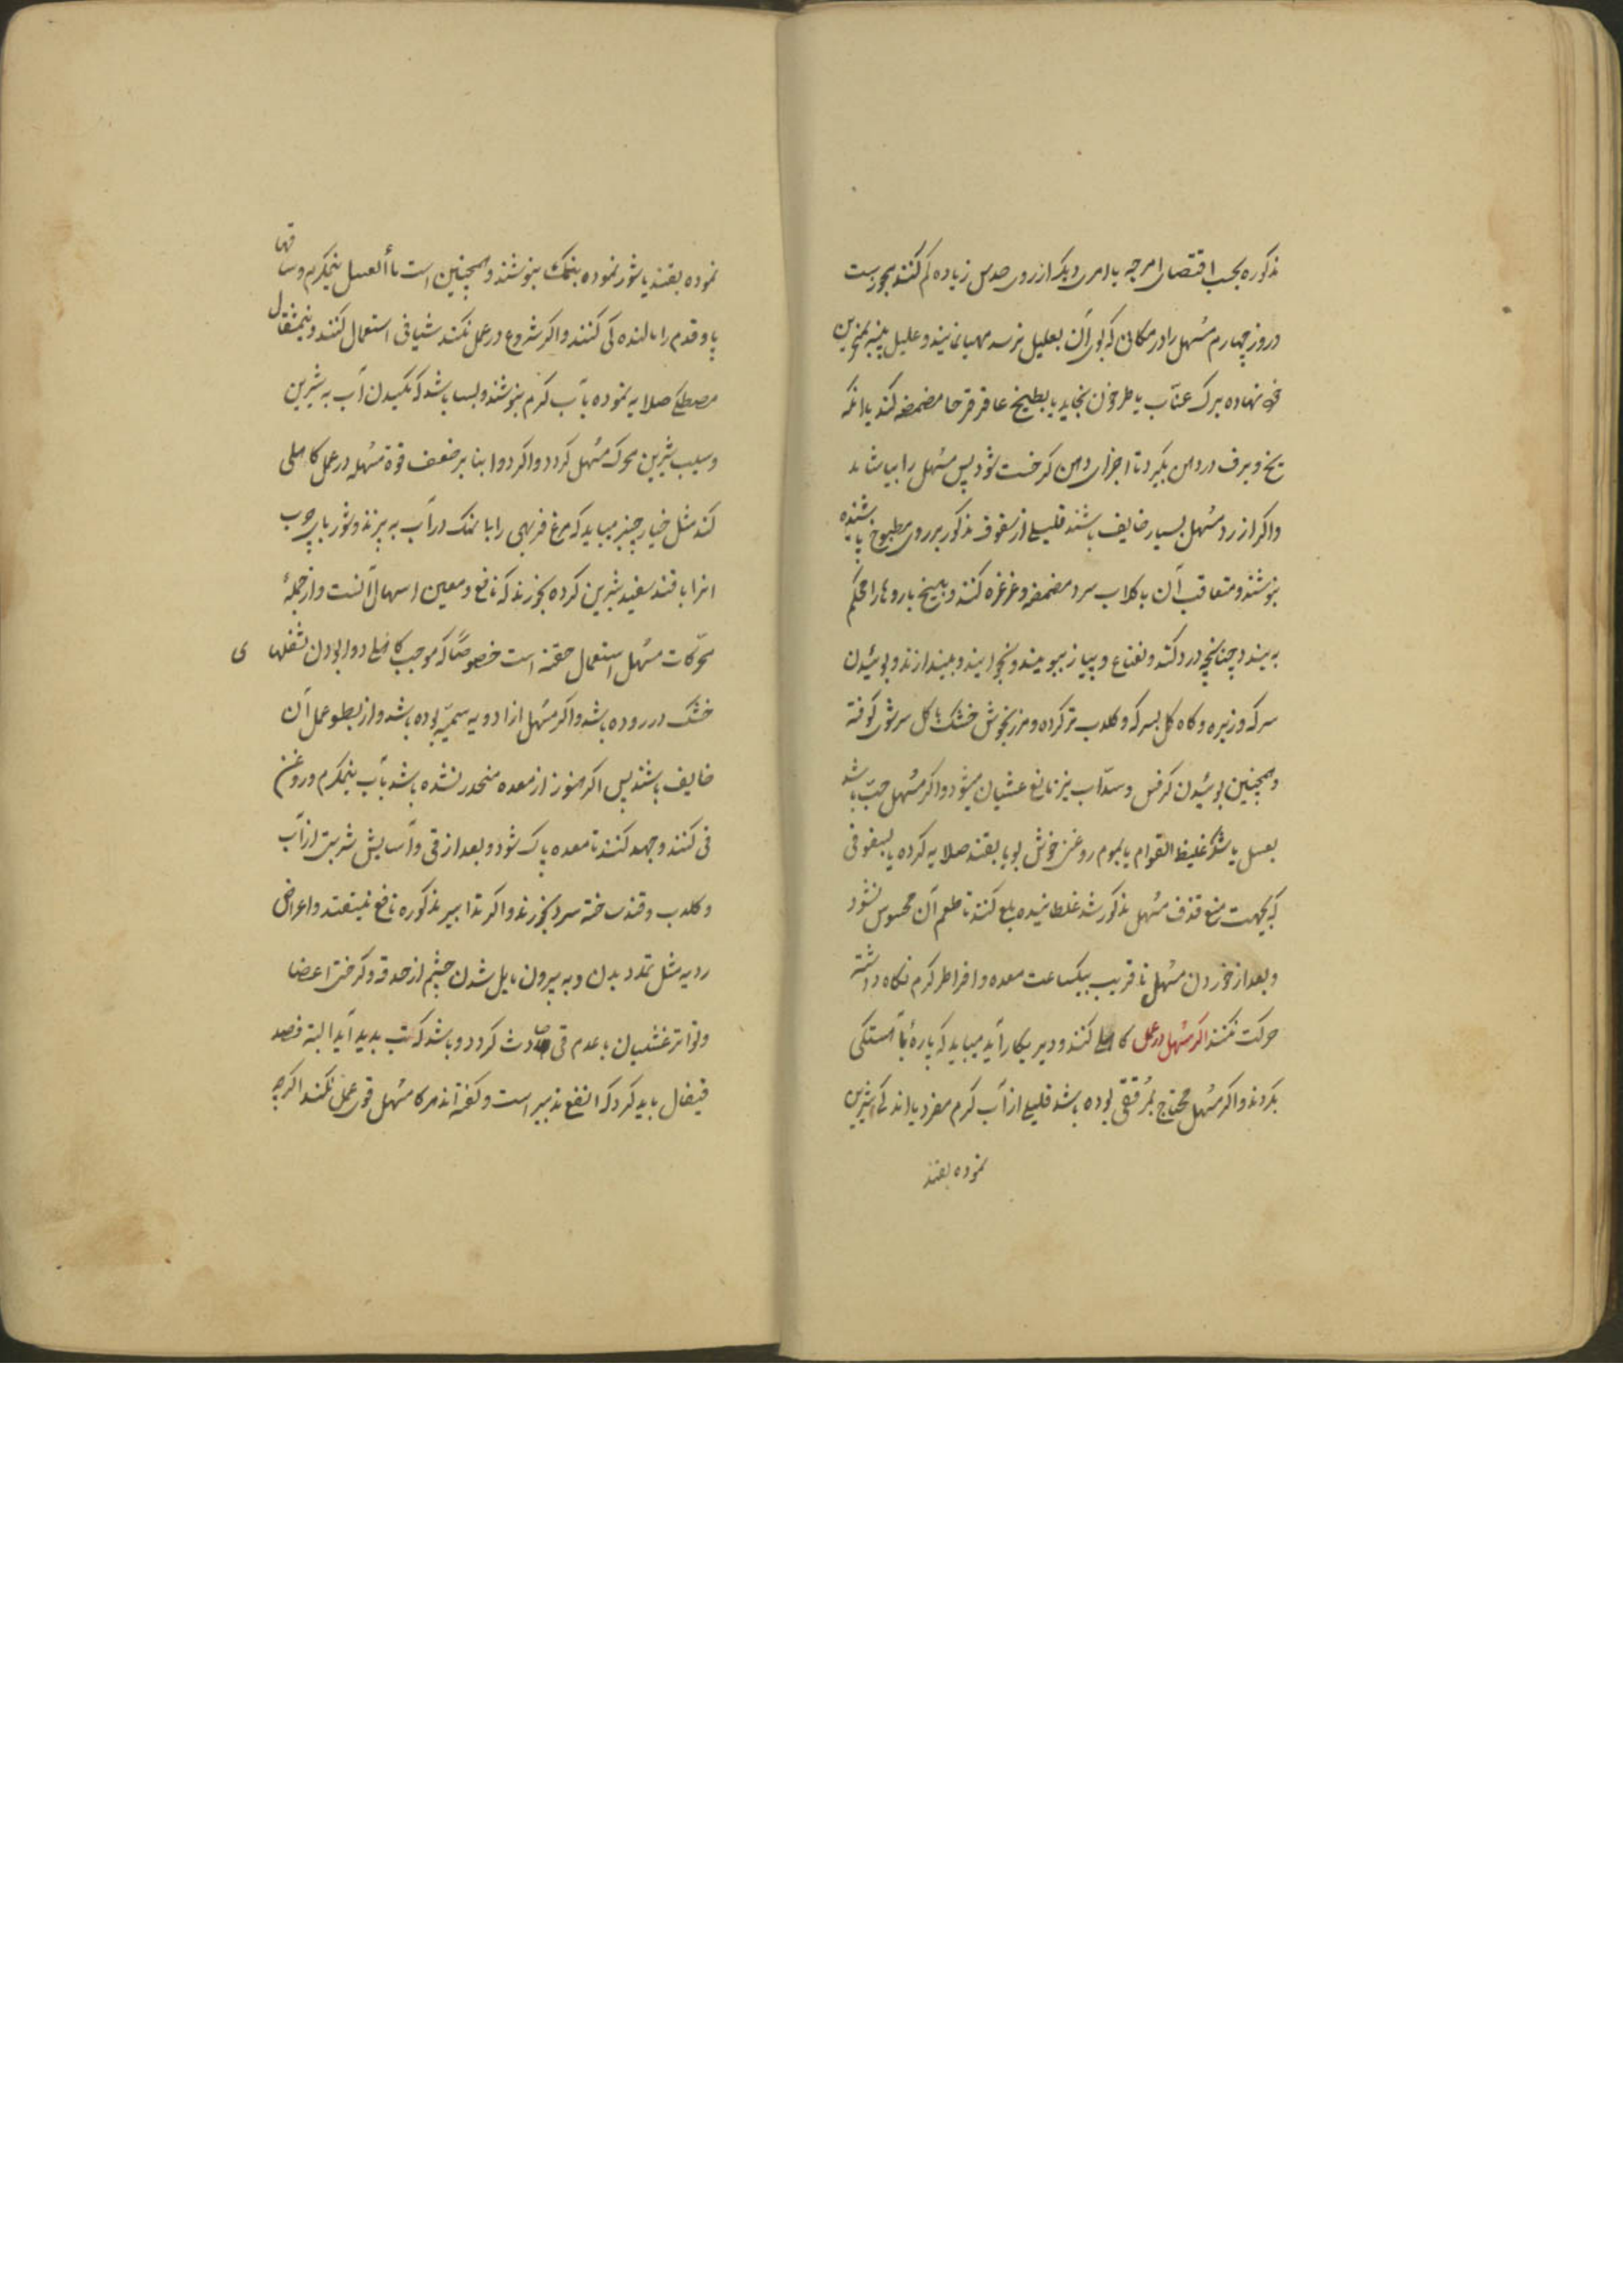 مذکوره بحسب اقتضای امزجه یا امری دیگر از روی حدس زیاده کم کنند مجوزست
در روز چهارم مسهل را در مکانی که بوی آن بعلیل نرسد مهیا نمایند و علیل پنبه بمنخرین
خود نهاده برگ عناب یا طرخون بخاید یا بطبیخ عاقرقرحا مضمضه کند یا آنکه
یخ و برف در دهن بگیرد تا اجزای دهن کرخت شود پس مسهل را بیاشامد
و اگر از رد مسهل بسیار خایف باشند قلیلی از سفوف مذکور بر روی مطبوخ پاشیده
بنوشند و متعاقب آن با گلاب سرد مضمضه و غرغره کنند و بیخ بازوها را محکم
به بندد چنانچه درد کند و نعناع و پیاز ببویند و بخوایند و بیندازند و بوئیدن
سرکه و زیره و کاه گل بسرکه و گلاب تر کرده و مرزنجوش خشک با گل سرشوی کوفته
و همچنین بوئیدن کرفس و سداب نیز مانع غشیان میشود و اگر مسهل حب باشد
بعسل یا شکر غلیظ القوام یا بموم روغن خوش بو یا بقند صلایه کرده یا بسفوفی
که بجهت منع قذف مسهل مذکور شد غلطانیده بلع کنند تا طعم آن محسوس نشود
و بعد از خوردن مسهل تا قریب بیکساعت معده و اطراف را گرم نگاه داشته
حرکت نکنند اگر مسهل در عمل کاهلی کنند و دیر بکار آید میباید که پاره بآهستگی
بگردند و اگر مسهل محتاج بمرققی بوده باشد قلیلی از آب گرم مفرد یا اندکی شیرین
نموده بقند
نموده بقند یا شور نموده بنمک بنوشند و همچنین است ماء العسل نیمگرم و ساقها
پا و قدم را مالنده کی کنند و اگر شروع در عمل نکند شیافی استعمال کنند و نیمثقال
مصطکی صلایه نموده بآب گرم بنوشند و بسا باشد که مکیدن آب به شیرین
و سیب شیرین محرک مسهل گردد و اگر دوا بنا بر ضعف قوة مسهله در عمل کاهلی
کند مثل خیارچنبر میباید که مرغ فربهی را با نمک در آب به پزند و شوربای چوب
انرا با قند سفید شیرین کرده بخورند که نافع و معین اسهال آنست و از جمله
محرکات مسهل استعمال حقنه است خصوصاً که موجب کاهلی دوا بودن ثفلهای
خشک در روده باشد و اگر مسهل از ادویه سمیه بوده باشد و از بطوء عمل آن
خایف باشند پس اگر هنوز از معده منحدر نشده باشد بآب نیمگرم و روغن
قی کنند و جهد کنند تا معده پاک شود و بعد از قی و آسایش شربتی از آب
و گلاب و قند ساخته سرد بخورند و اگر تدابیر مذکوره نافع نیفتد و اعراض
ردیه مثل تمدد بدن و به بیرون مایل شدن چشم از حدقه و کرختی اعضا
و تواتر غشیان با عدم قی حادث گردد و باشد که تب پدید آید البته فصد
قیفال باید کرد که انفع تدبیر است و گفته اند هرگاه مسهل قوی عمل نکند اگرچه